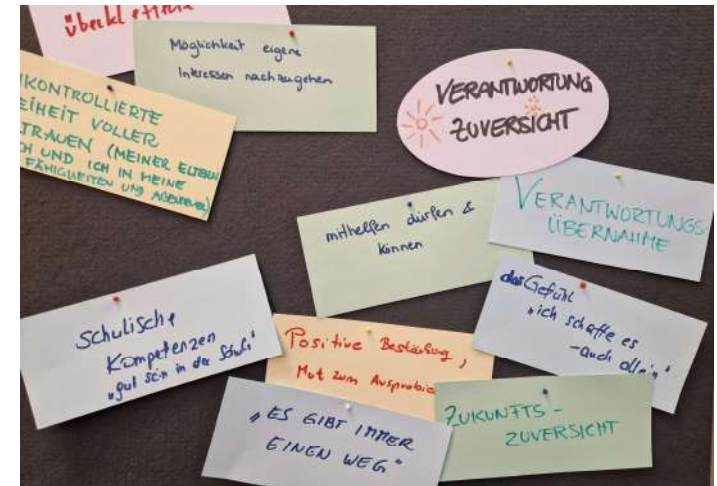 Möglichkeit eigene
Interessen nachzugehen
KONTROLLIERTE
EIHEIT VOLLER
TRAUEN (MEINER ELTERN
CH UND ICH IN MEINE
FÄHIGKEITEN UND
VERANTWORTUNG
ZUVERSICHT
mithelfen dürfen &
können
VERANTWORTUNGS-
ÜBERNAHME
das Gefühl
„ich schaffe es
-auch allein"
Schulische
Kompetenzen
„gut sein in der Schule"
Positive Bestärkung,
Mut zum Ausprobie
„ES GIBT IMMER
EINEN WEG"
ZUKUNFTS-
ZUVERSICHT